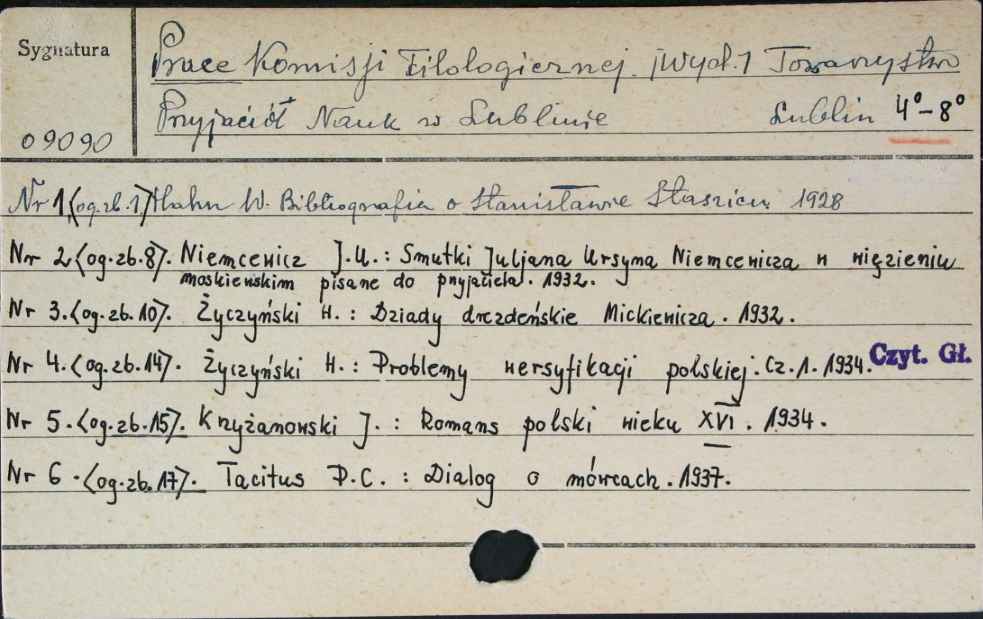 Sygnatura
Prace Komisji Filologicznej. [Wyd.] Towarzystwo
Przyjaciół Nauk w Lublinie Lublin 4°-8°
09090
Nr 1<og.zb.1> Hahn W. Bibliografia o Stanisławie Staszicu 1928
Nr 2<og.zb.8>. Niemcewicz J.U.: Smutki Juljana Ursyna Niemcewicza w więzieniu
moskiewskim pisane do przyjaciela. 1932.
Nr 3.<og.zb.10>. Życzyński H.: Dziady drezdeńskie Mickiewicza. 1932.
Nr 4.<og.zb.14>. Życzyński H.: Problemy wersyfikacji polskiej. Cz.1. 1934. Czyt. Gł.
Nr 5.<og.zb.15>. Krzyżanowski J.: Romans polski wieku XVI. 1934.
Nr 6.<og.zb.17>. Tacitus P.C.: Dialog o mówcach. 1937.